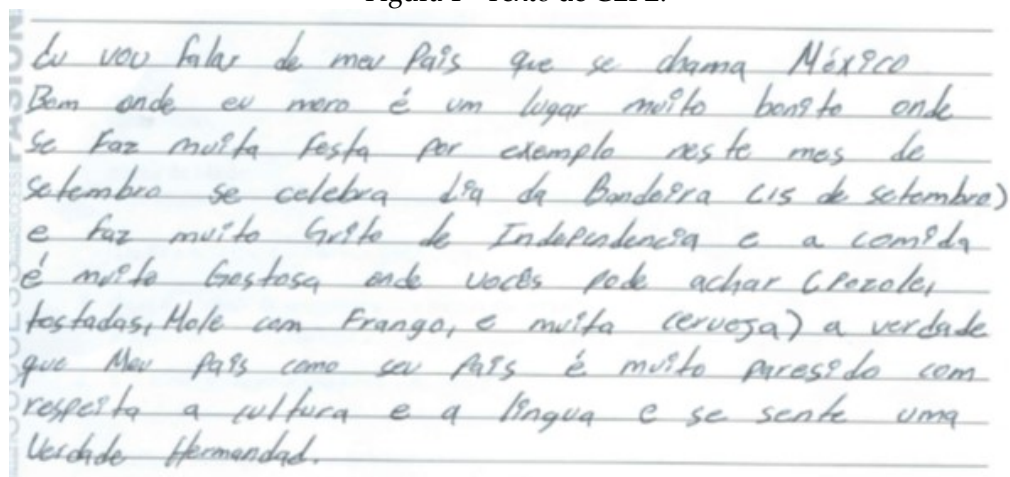 Eu vou falar de meu País que se chama México
Bom onde eu moro é um lugar muito bonito onde
se Faz muita festa por exemplo neste mes de
setembro se celebra dia da Bandeira (15 de setembro)
e faz muito Grito de Independencia e a comida
é muito Gostosa onde vocês pode achar (Pozole,
tostadas, Mole com Frango, e muita cerveja) a verdade
que Meu País como seu País é muito paresido com
respeita a cultura e a lingua e se sente uma
Verdade Hermandad.